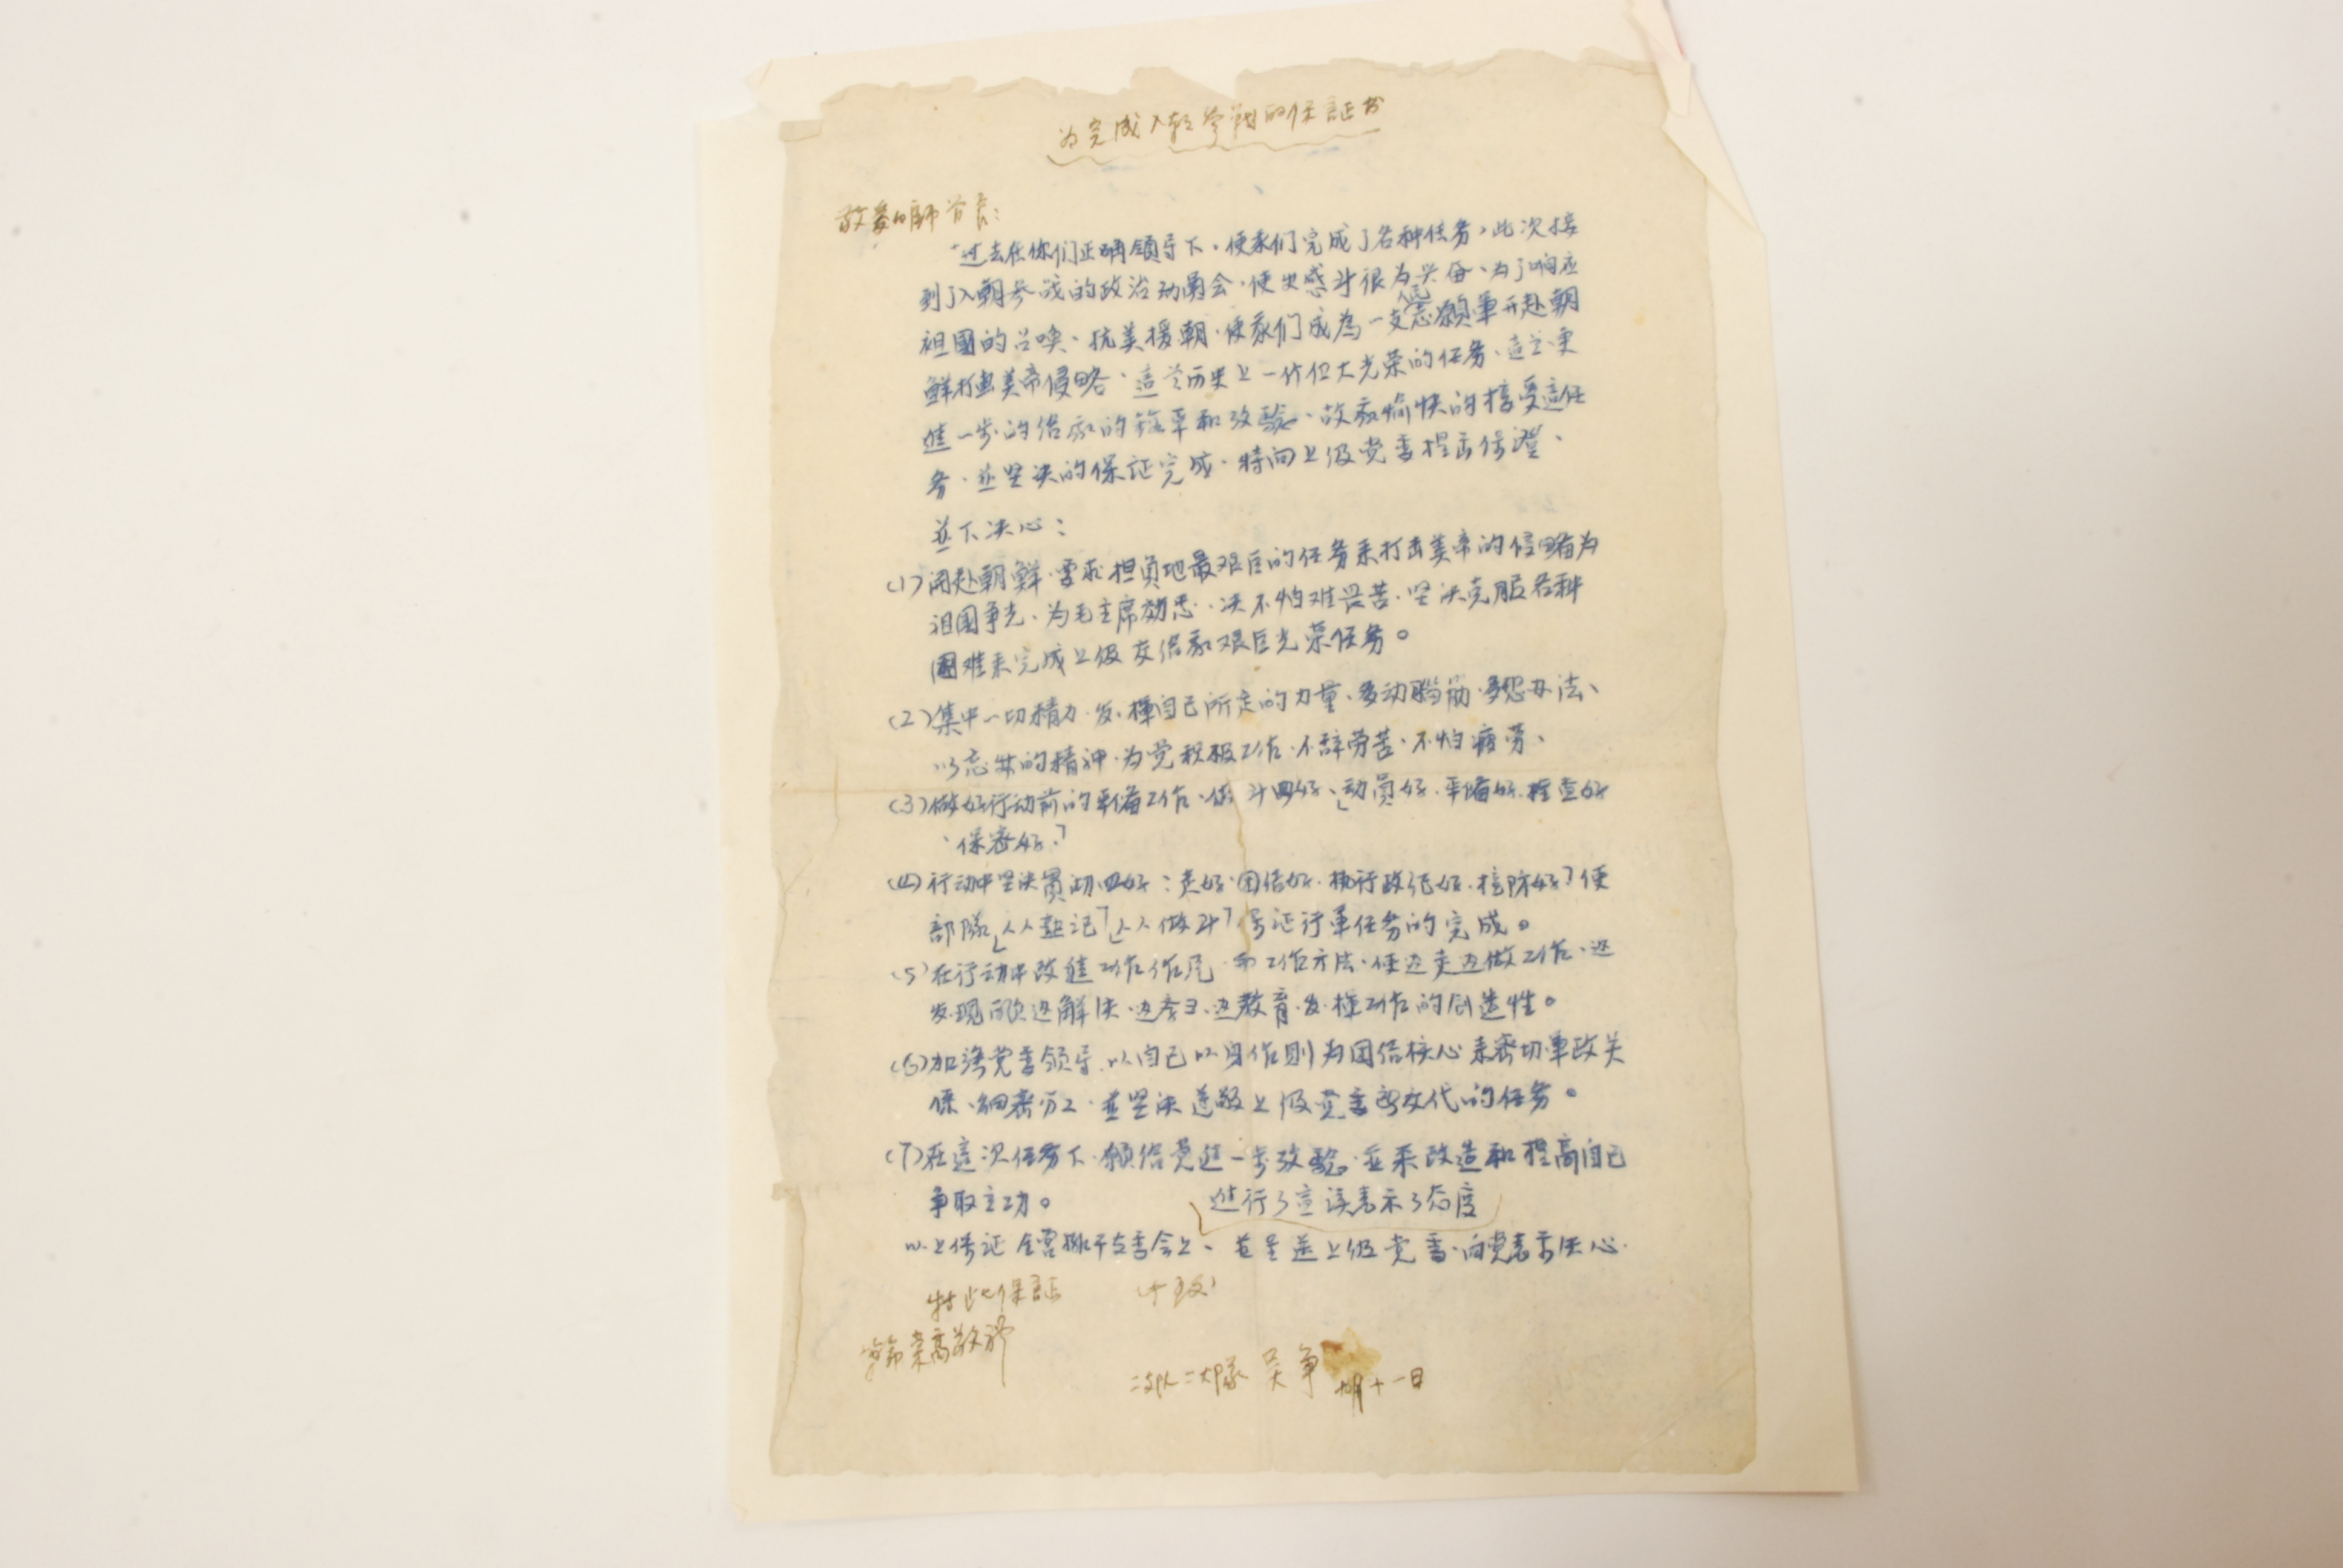 为完成入朝参戰的保証书
敬爱的師首長：
过去在你们正确領导下、使我们完成了各种任务，此次接
到了入朝参战的政治动員会、使我感到很为兴奋、为了响应
祖國的召唤、抗美援朝、使我们成為一支人民志願軍开赴朝
鮮打击美帝侵略、這是历史上一件伟大光荣的任务、這是更
進一步的给我的 和攷驗、故我愉快的接受這任
务、並坚决的保证完成、特向上级党委提出保證、
並下决心：
(1)開赴朝鮮、要求担負地最艰巨的任务来打击美帝的侵略为
祖国争光、为毛主席効忠、决不怕难 苦、坚决克服各种
困难来完成上级交给我艰巨光荣任务。
(2)集中一切精力、发揮自己所走的力量、多动腦筋、多想办法、
以忘我的精神、为党积极工作、不辞劳苦、不怕疲劳、
(3)做好行动前的準備工作、做到四好、「动員好、準備好、检查好
、保密好、」
(四)行动中坚决貫彻四好：走好、团结好、执行政纪好、控防好」使
部隊「人人熟记」「人人做到」保证行軍任务的完成。
(5)在行动中改進工作作风、和工作方法、使边走边做工作、边
发现問題边解决、边学习、边教育、发揮工作的创造性。
(6)加强党委領导、以自己以身作則为团结核心来密切軍政关
係、細密分工、並坚决 上级党委所交代的任务。
(7)在這次任务下、願给党進一步攷驗、並来改造和提高自己
争取立功。
進行了宣读表示了态度
以上保证 支委会上、並呈送上级党委、向党表示决心
特此保証 此致
崇高敬礼
二支队二大隊 吴争 月十一日